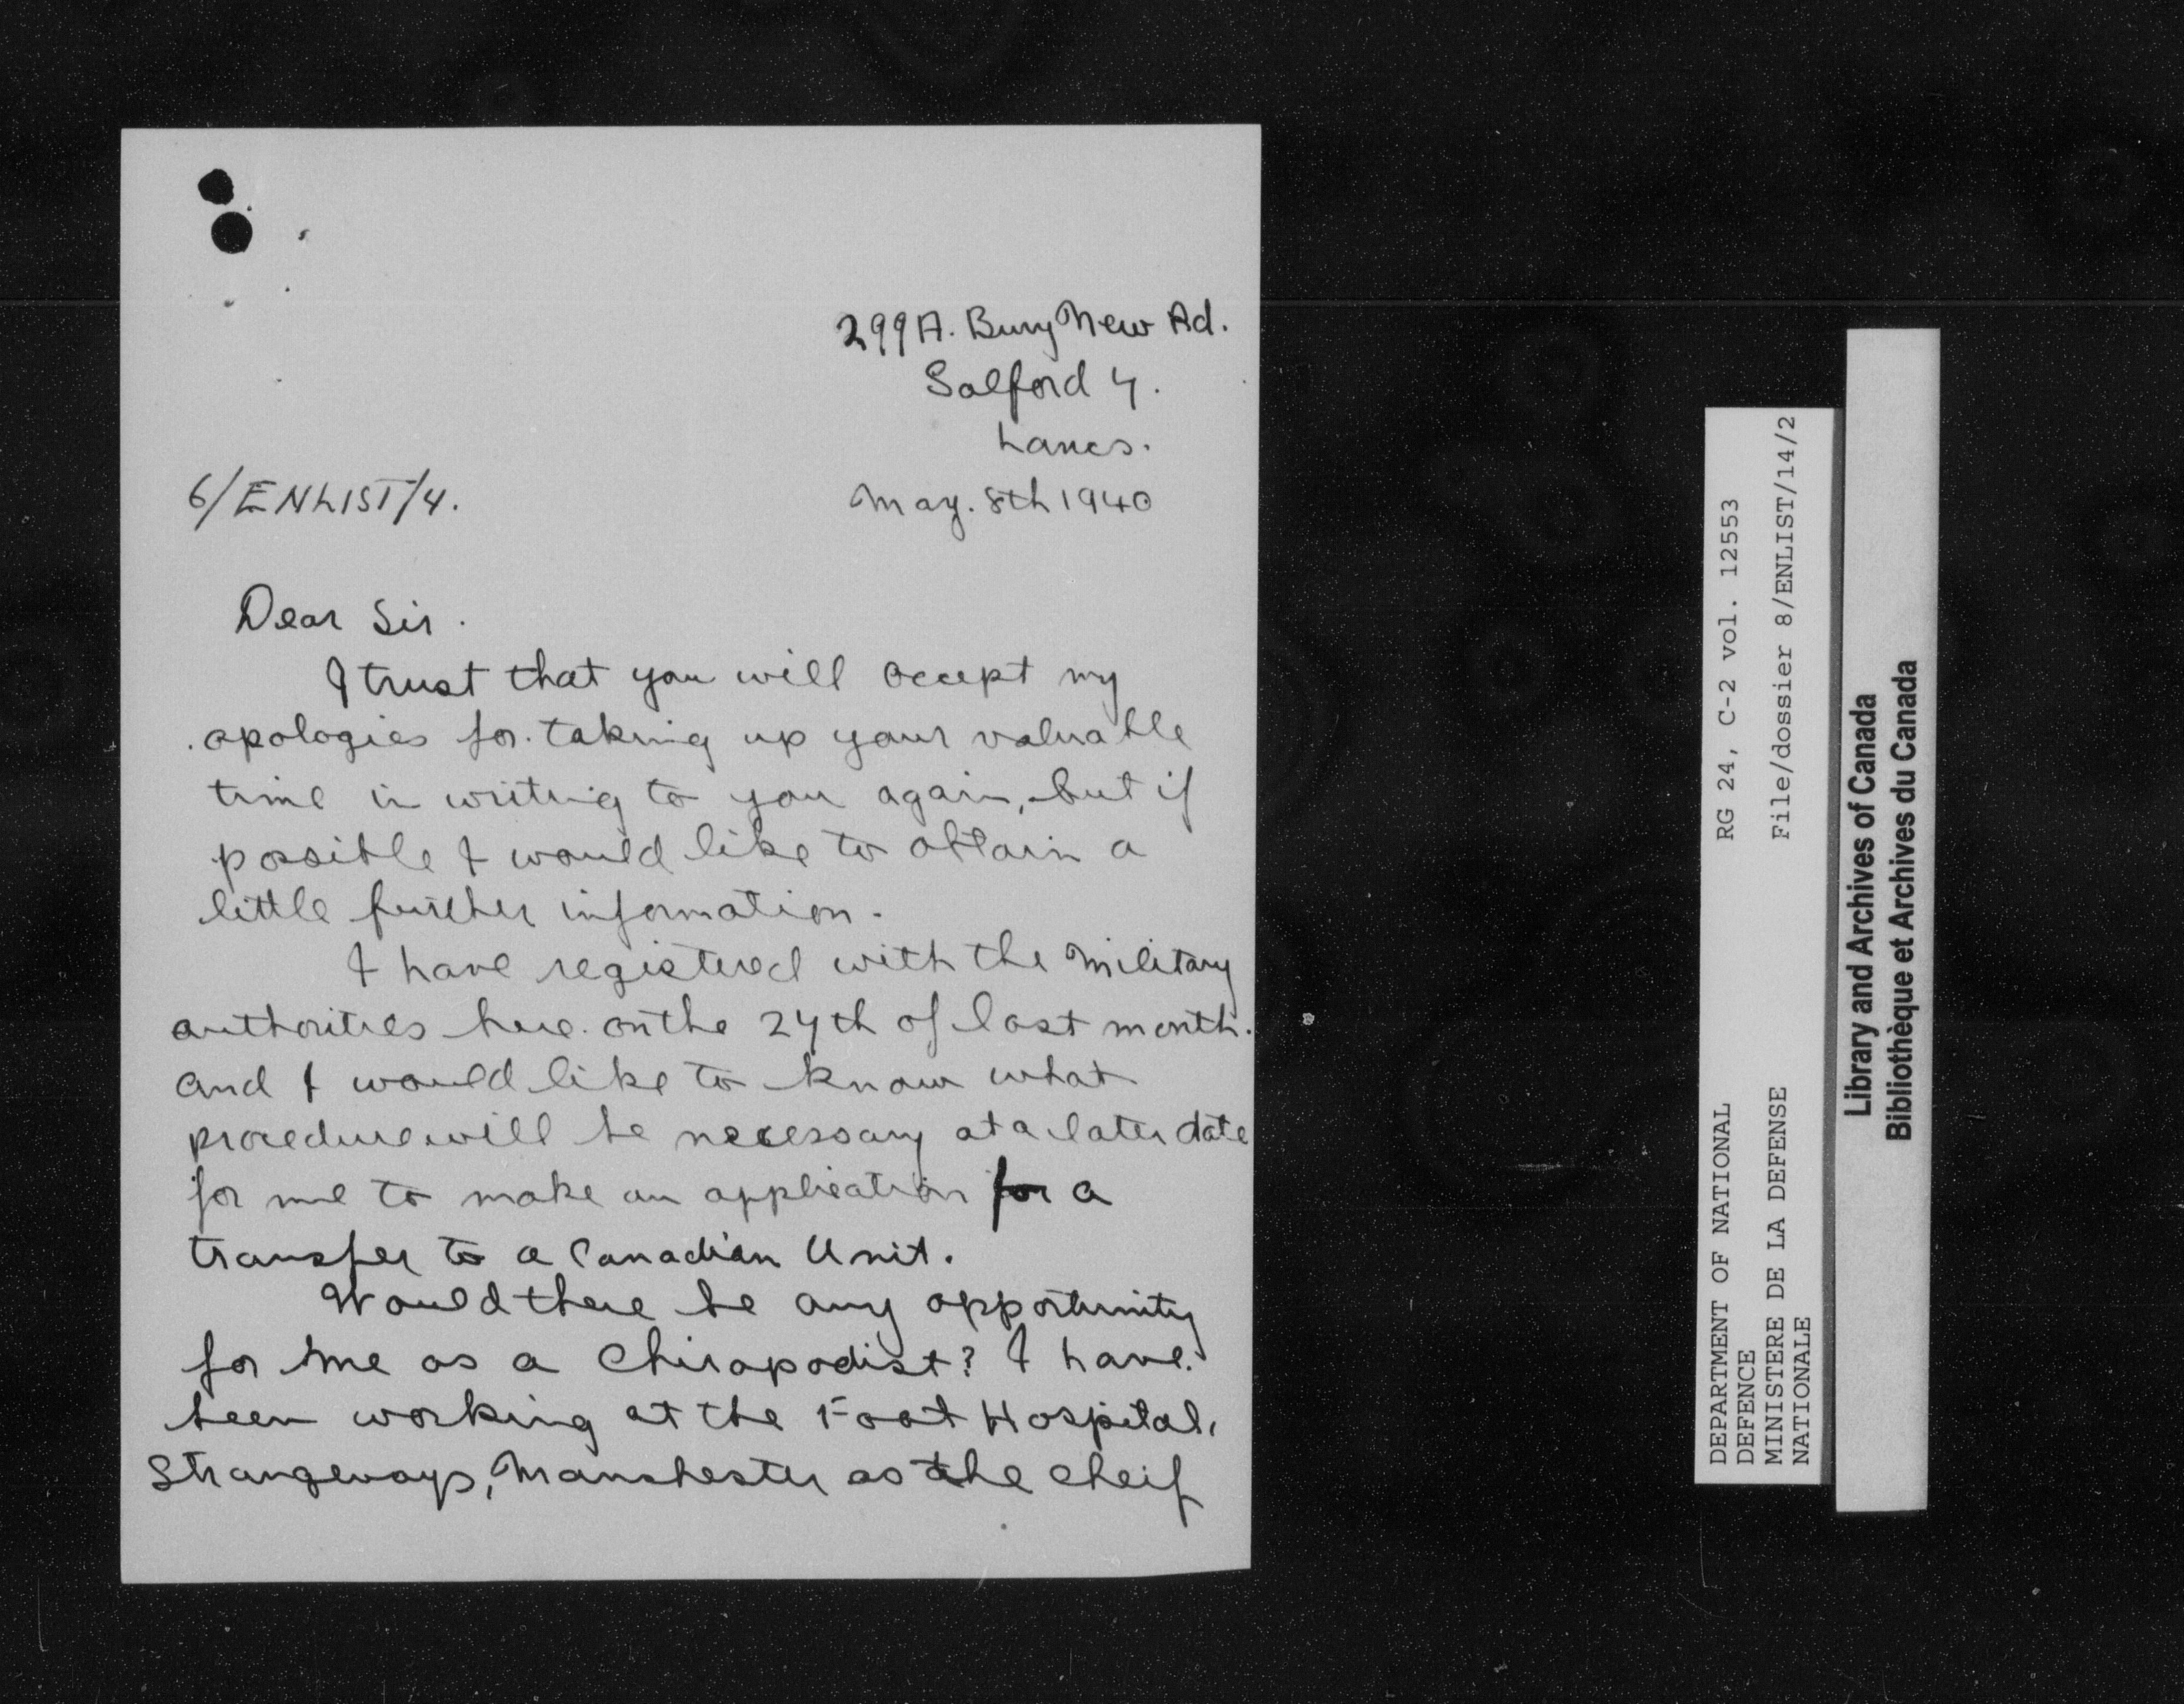 299A. Bury New Rd.
Salford 7.
Lancs.
6/ENLIST/4.
May. 8th 1940
Dear Sir.
I trust that you will accept my
apologies for taking up your valuable
time in writing to you again, but if
possible I would like to obtain a
little further information.
I have registered with the Military
authorities here on the 27th of last month.
and I would like to know what
procedure will be necessary at a later date
for me to make an application for a
transfer to a Canadian Unit.
Would there be any opportunity
for me as a Chiropodist? I have
been working at the Foot Hospital,
Strangeways, Manchester as the cheif
RG 24, C-2 vol. 12553
File/dossier 8/ENLIST/14/2
DEPARTMENT OF NATIONAL
DEFENCE
MINISTERE DE LA DEFENSE
NATIONALE
Library and Archives of Canada
Bibliothèque et Archives du Canada